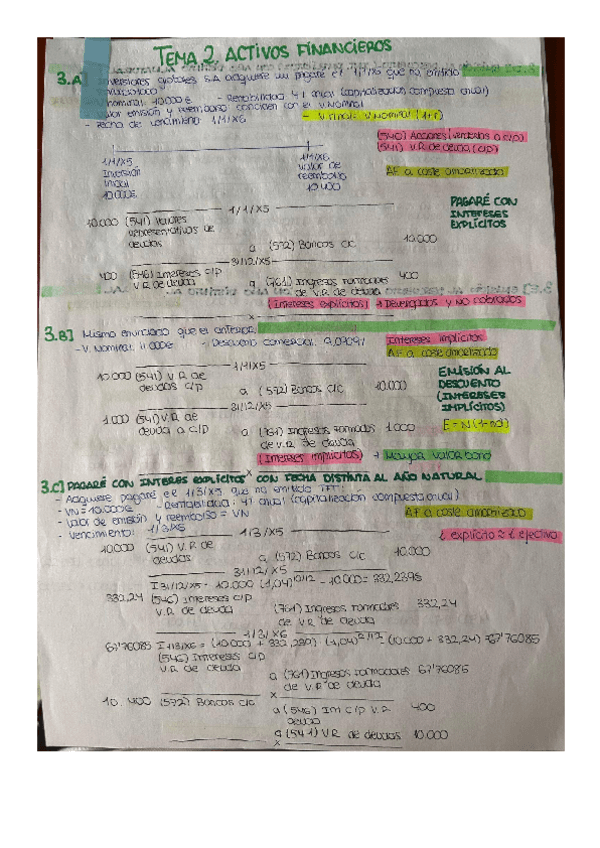 TEMA 2. ACTIVOS FINANCIEROS
3.A) Inversiones globales S.A adquiere un pagaré el 1/1/X5 que ha emitido
nominal: 10.000€ - Rentabilidad 4% anual (capitalización compuesta anual)
valor emisión y reembolso coinciden con el V.Nominal
- Fecha de vencimiento 1/1/X6
- V Final = V Nominal (1+r)
(540) Acciones
(541) V.R de deuda (c/p)
1/1/X5
Inversión
inicial
10.000€
1/1/X6
valor de
reembolso
10.400
AF a coste amortizado
PAGARÉ CON
INTERESES
EXPLÍCITOS
1/1/X5
10.000 (541) Valores
representativos de
deudas
a (572) Bancos c/c 10.000
31/12/X5
400 (546) Intereses c/p
V.R. de deuda
a (761) Ingresos formados 400
de V.R. de deuda
(Intereses explícitos) → Devengados y NO cobrados
x
3.B) Mismo enunciado que el anterior,
- V. Nominal: 11.000€ - Descuento comercial: 9,0909%
Intereses implícitos
AF a coste amortizado
1/1/X5
10.000 (541) V.R de
deudas c/p
a (572) Bancos c/c 10.000
EMISIÓN AL
DESCUENTO
(INTERESES
IMPLÍCITOS)
31/12/X5
1.000 (541) V.R de
deuda a c/p
a (761) Ingresos formados 1.000
de V.R. de deuda
E = N (1-nd)
(Intereses implícitos) → Mayor valor bono
x
3.C) PAGARÉ CON INTERES EXPLÍCITOS CON FECHA DISTINTA AL AÑO NATURAL
- Adquiere pagaré el 1/3/X5 que ha emitido TFT:
- VN = 10.000€ - Rentabilidad: 4% anual (capitalización compuesta anual)
- Valor de emisión y reembolso = VN
- Vencimiento: 1/3/X6
AF a coste amortizado
i explícito = i efectivo
1/3/X5
10.000 (541) V.R. de
deudas
a (572) Bancos c/c 10.000
31/12/X5
I 31/12/X5 = 10.000 (1,04)^10/12 - 10.000 = 332,2395
332,24 (546) Intereses c/p
V.R. de deuda
(761) Ingresos formados 332,24
de V.R. de deuda
1/3/X6
67'76085 I 1/3/X6 = (10.000 + 332,239) (1,04)^2/12 - (10.000 + 332,24) = 67'76085
(546) Intereses c/p
V.R. de deuda
a (761) Ingresos formados 67'76085
de V.R. de deuda
x
10.400 (572) Bancos c/c
a (546) Int c/p V.R 400
deuda
a (541) V.R de deudas 10.000
x